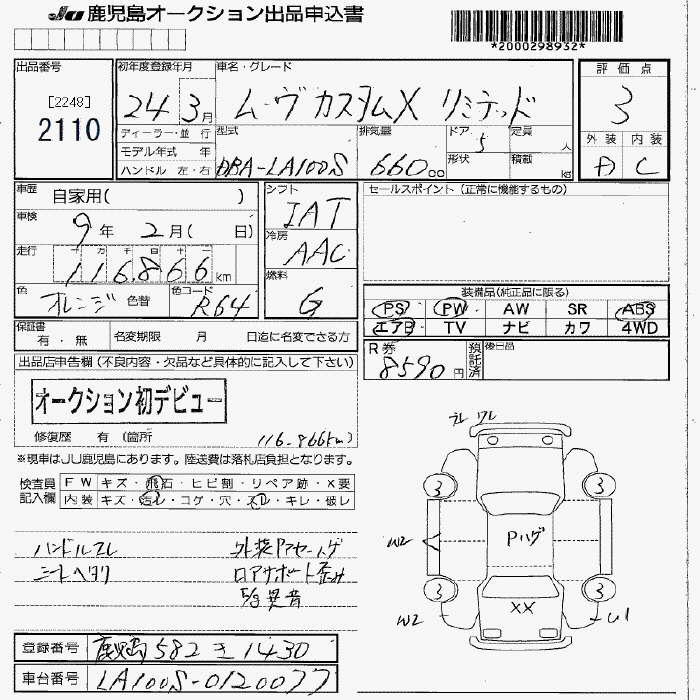 JU 鹿児島オークション出品申込書
*2000298932*
出品番号
[2248]
2110
初年度登録年月
24年3月
車名・グレード
ムーヴカスタムX リミテッド
評価点
3
外装 内装
A C
ディーラー・並行
モデル年式 年
ハンドル 左・右
型式
DBA-LA100S
排気量
660cc
ドア 5
形状
定員 人
積載 kg
車歴 自家用( )
車検 9年 2月( 日)
走行 十万千百十一
116,866 km
色 オレンジ 色替
色コード R64
シフト
IAT
冷房
AAC
燃料
G
セールスポイント(正常に機能するもの)
装備品(純正品に限る)
PS PW AW SR ABS
エアB TV ナビ カワ 4WD
保証書
有・無
名変期限 月 日迄に名変できる方
R券
8590円
預託済
後日品
出品店申告欄(不良内容・欠品など具体的に記入して下さい)
オークション初デビュー
修復歴 有(箇所
116,866km)
※現車はJU鹿児島にあります。陸送費は落札店負担となります。
検査員記入欄
FW キズ・飛石・ヒビ割・リペア跡・X要
内装 キズ・汚レ・コゲ・穴・スレ・キレ・破レ
ハンドルスレ
シートヘタリ
外装ヤケ
ロアサポート歪み
異音
ワレ
3 3
W2
Pハゲ
3 3
XX
W2
U1
登録番号 鹿児島 582 き 1430
車台番号 LA100S-0120077